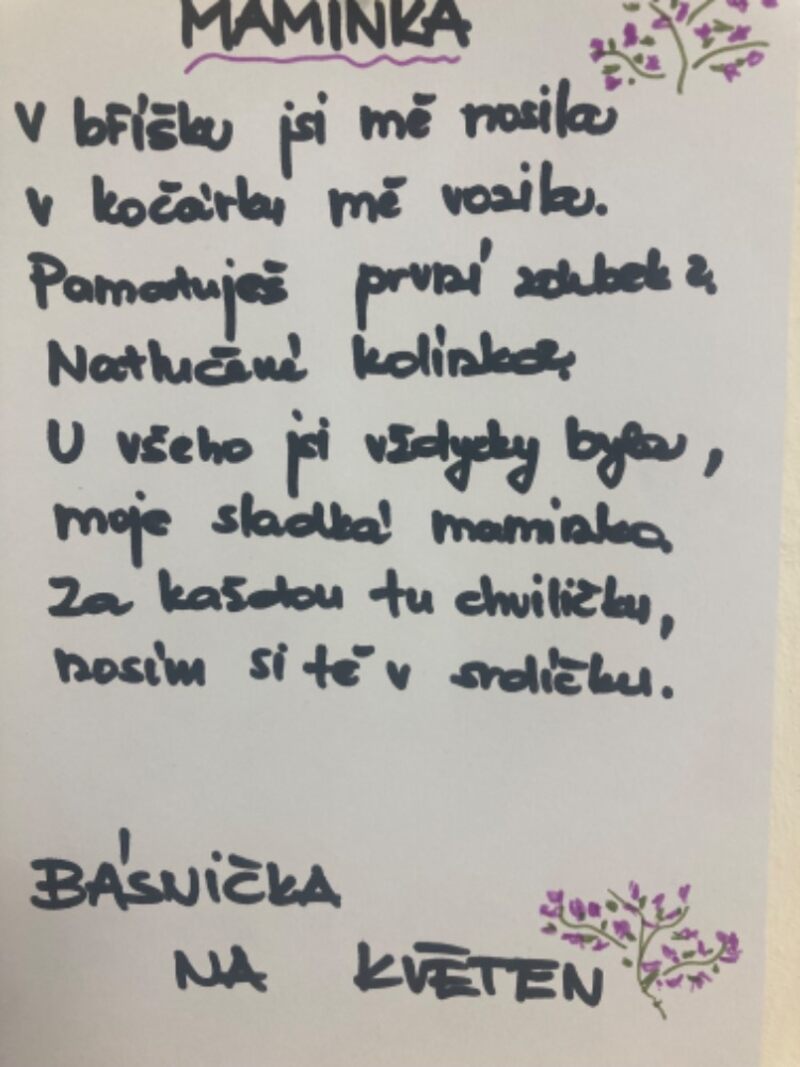 MAMINKA
V bříšku jsi mě nosila
v kočárku mě vozila.
Pamatuješ první zoubek?
Natlučené kolínko?
U všeho jsi vždycky byla,
moje sladká maminko.
Za každou tu chviličku,
nosím si tě v srdíčku.
BÁSNIČKA
NA KVĚTEN